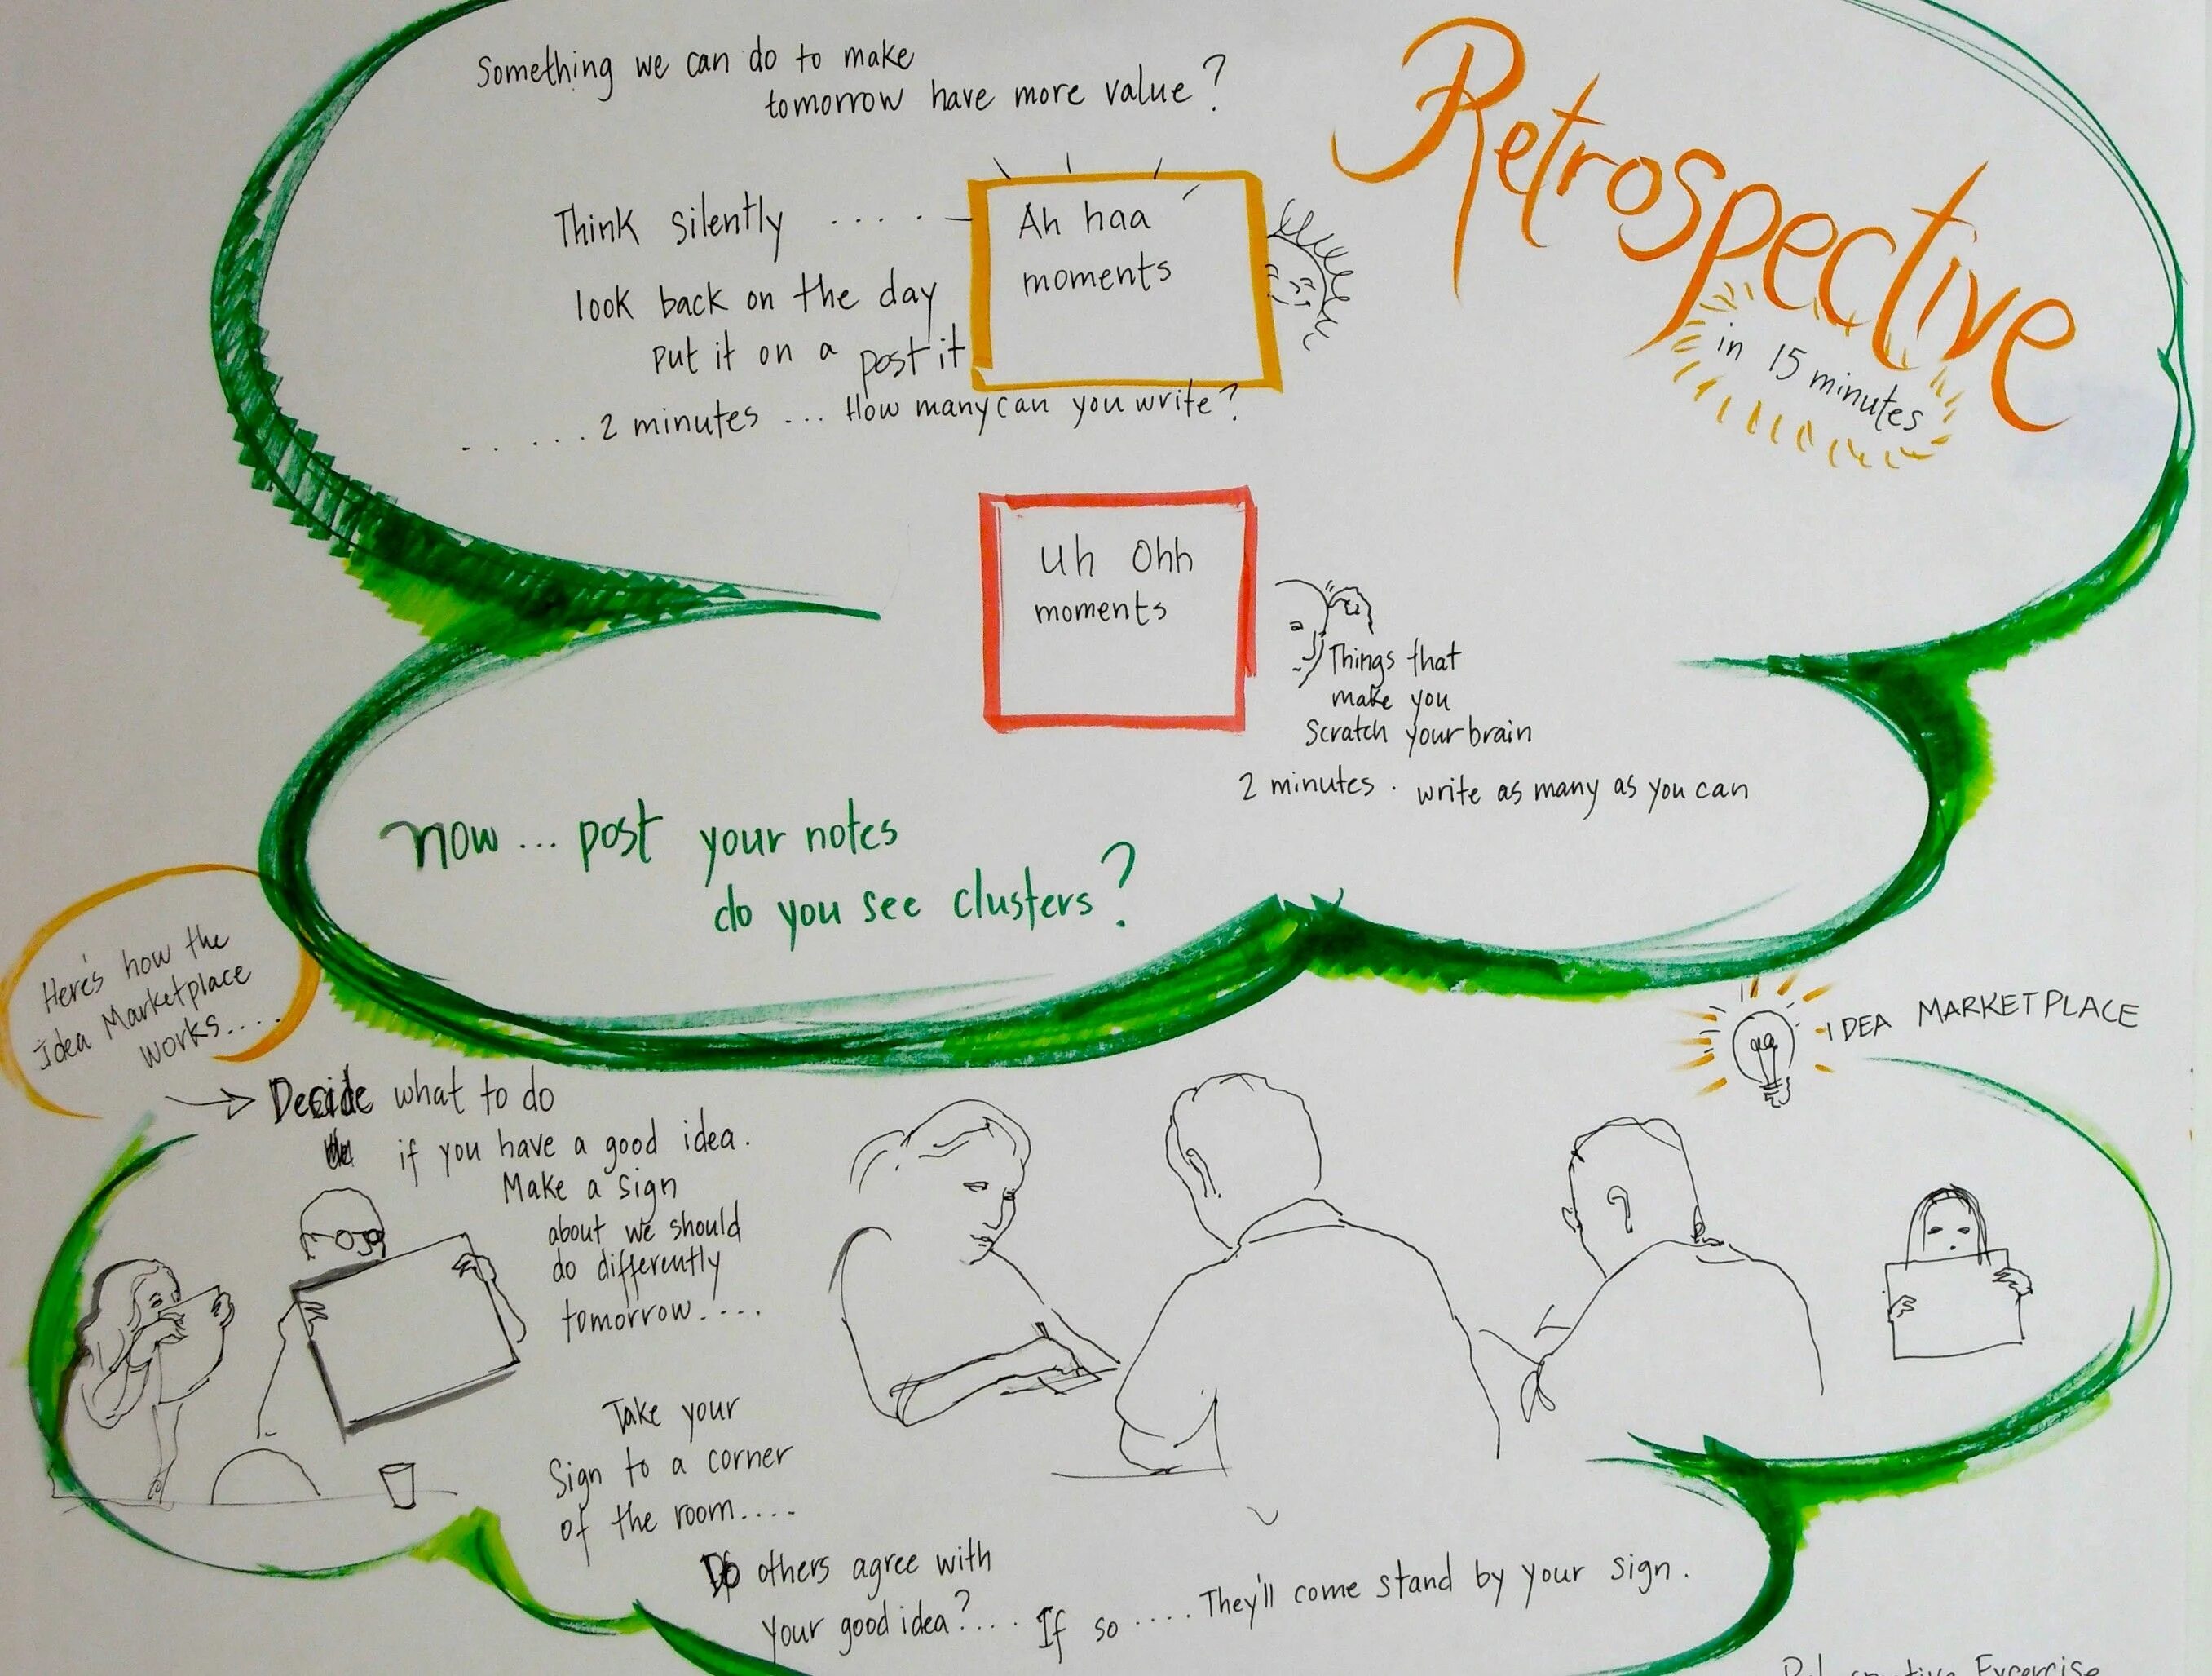 Something we can do to make
tomorrow have more value?
Retrospective
in 15 minutes
Think silently .....
Ah haa
moments
look back on the day
put it on a post it
. . ....2 minutes ... How many can you write?
Uh Ohh
moments
Things that
make you
Scratch your brain
2 minutes . write as many as you can
now... post your notes
do you see clusters?
Here's how the
Idea Marketplace
works....
IDEA MARKETPLACE
→ Decide what to do
if you have a good idea.
Make a sign
about we should
do differently
tomorrow.....
Take your
Sign to a corner
of the room....
Do others agree with
your good idea?.... If so .....They'll come stand by your sign.